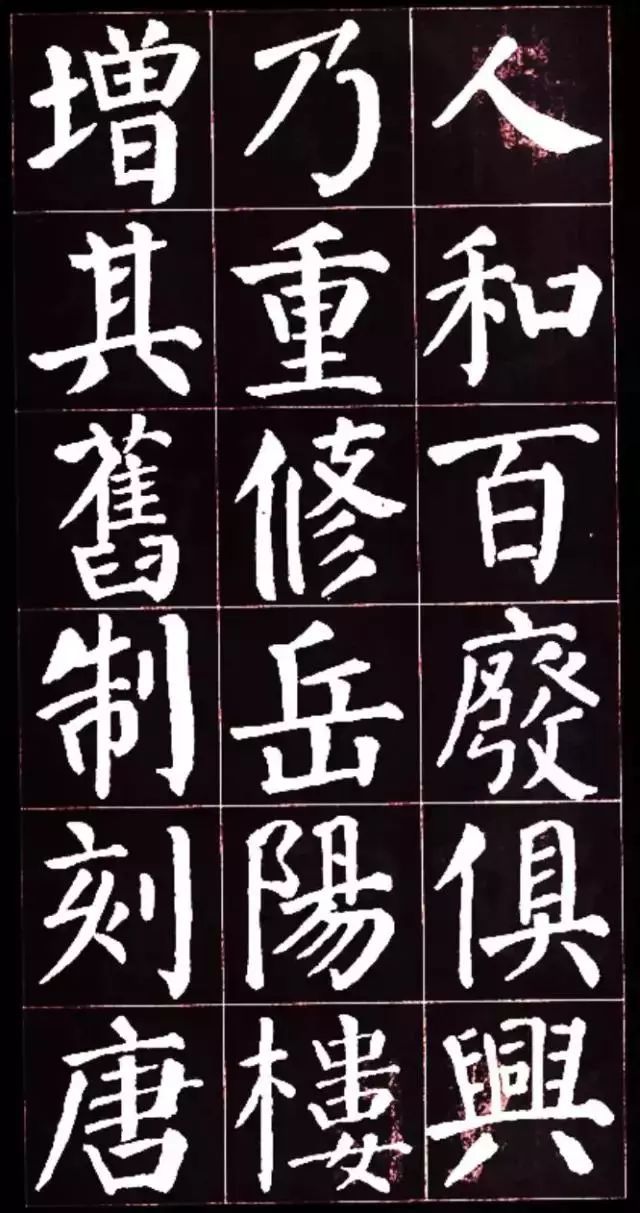 人和百廢俱興
乃重修岳陽樓
增其舊制刻唐